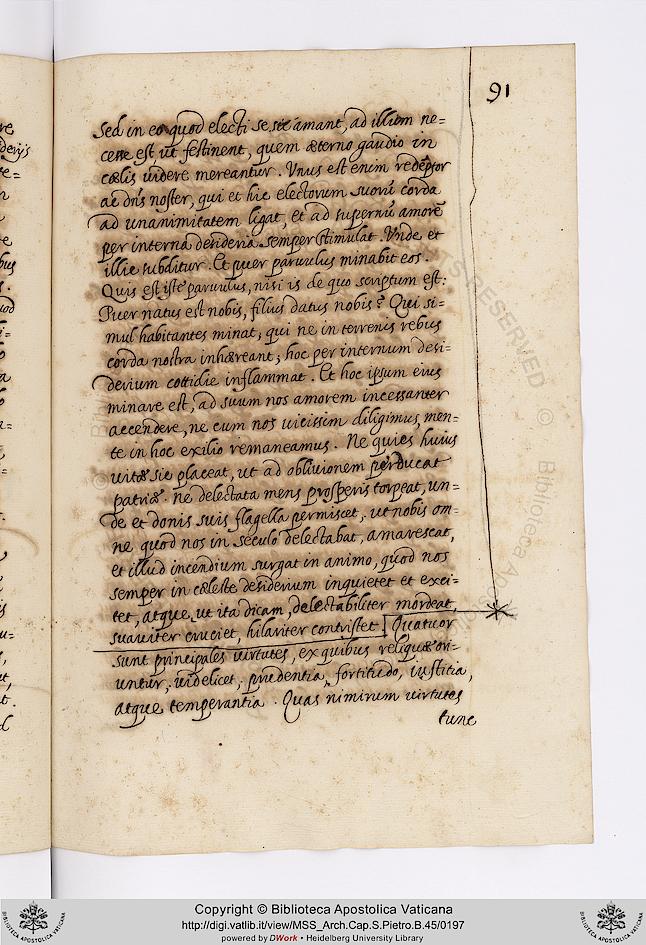 91
Sed in eo quod electi se sic amant, ad illum ne=
cesse est, ut festinent, quem æterno gaudio in
cœlis videre mereantur. Unus est enim redẽptor
ac dñs noster, qui et hic electorum suorũ corda
ad unanimitatem ligat, et ad supernũ amorẽ
per interna desideria semper stimulat. Unde et
illic subditur. Et puer parvulus minabit eos.
Quis est iste parvulus, nisi is de quo scriptum est:
Puer natus est nobis, filius datus nobis? Qui si=
mul habitantes minat, qui ne in terrenis rebus
corda nostra inhæreant, hoc per internum desi=
derium cottidie inflammat. Et hoc ipsum eius
minare est, ad suum nos amorem incessanter
accendere, ne cum nos vicissim diligimus, men=
te in hoc exilio remaneamus. Ne quies huius
vitæ sic placeat, ut ad oblivionem perducat
patriæ. ne delectata mens prosperis torpeat, un=
de et donis suis flagella permiscet, ut nobis om=
ne quod nos in seculo delectabat, amarescat,
et illud incendium surgat in animo, quod nos
semper in cæleste desiderium inquietet et exci=
tet, atque, ut ita dicam, delectabiliter mordeat,
suaviter cruciet, hilariter contristet. Quatuor
sunt principales virtutes, ex quibus reliquæ ori=
untur, videlicet, prudentia, fortitudo, iustitia,
atque temperantia. Quas nimirum virtutes
tunc
Copyright © Biblioteca Apostolica Vaticana
http://digi.vatlib.it/view/MSS_Arch.Cap.S.Pietro.B.45/0197
powered by DWork • Heidelberg University Library